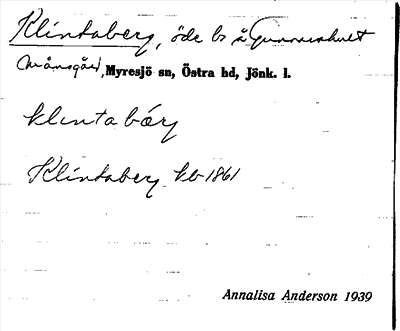 Klintaberg, öde bs å Gunnarshult
Månsgård, Myresjö sn, Östra hd, Jönk. l.
klintabärj
Klintaberg kb 1861
Annalisa Anderson 1939